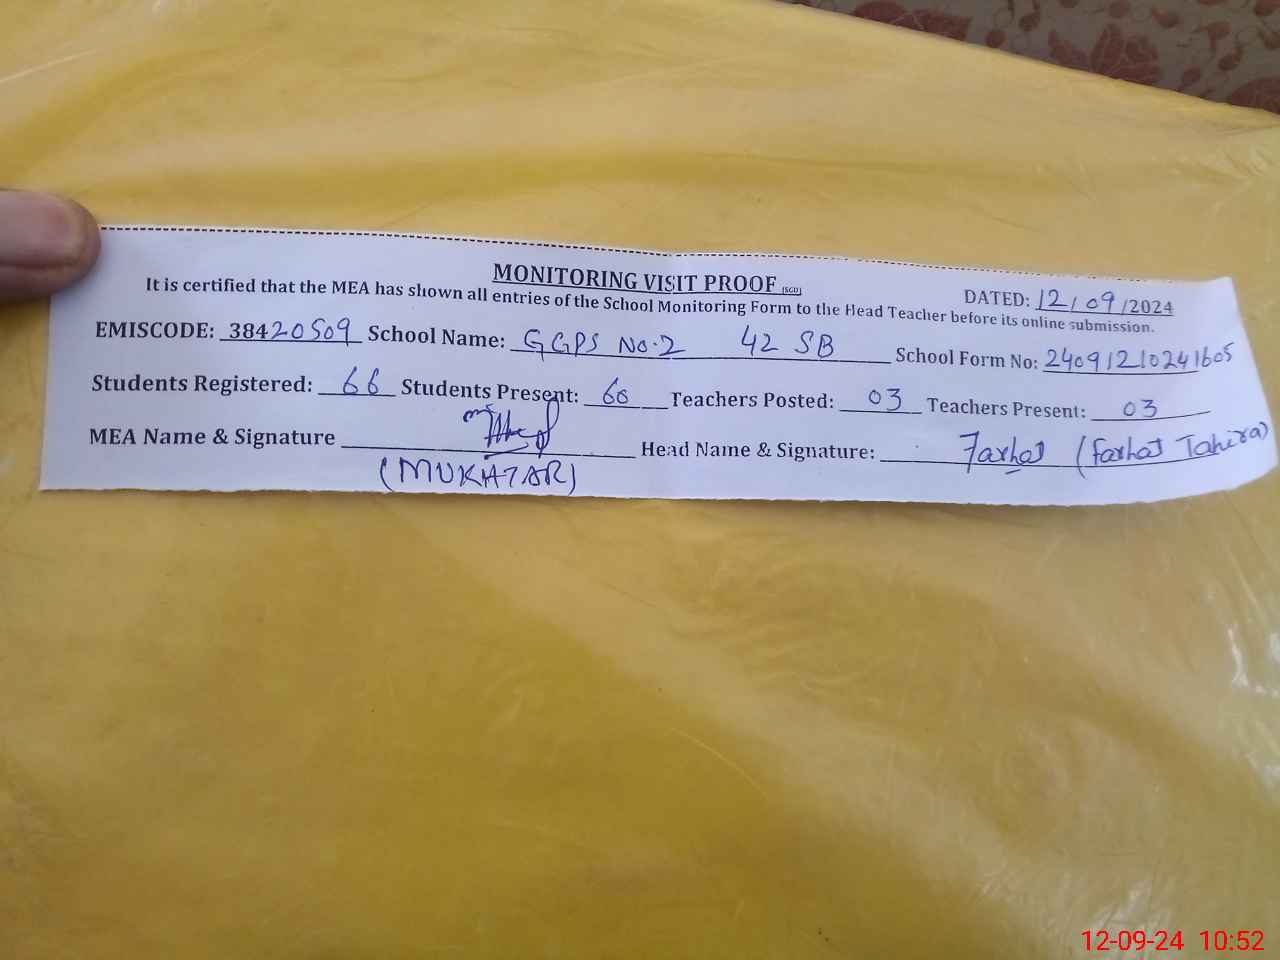 MONITORING VISIT PROOF (SGD)
DATED: 12/09/2024
It is certified that the MEA has shown all entries of the School Monitoring Form to the Head Teacher before its online submission.
EMISCODE: 38420509 School Name: GGPS No.2 42 SB School Form No: 24091210241605
Students Registered: 66 Students Present: 60 Teachers Posted: 03 Teachers Present: 03
MEA Name & Signature Head Name & Signature: Farhat (Farhat Tahira)
(MUKHTAR)
12-09-24 10:52